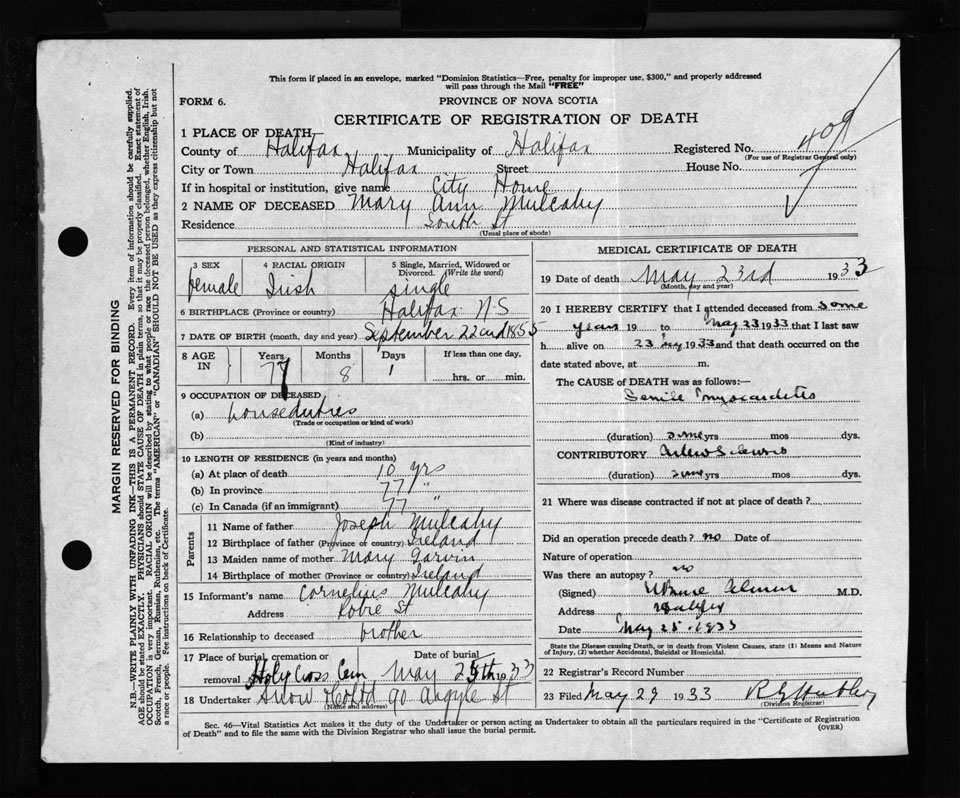 This form if placed in an envelope, marked "Dominion Statistics—Free, penalty for improper use, $300," and properly addressed
will pass through the Mail "FREE"
FORM 6.
PROVINCE OF NOVA SCOTIA
CERTIFICATE OF REGISTRATION OF DEATH
409
1 PLACE OF DEATH—
County of Halifax Municipality of Halifax Registered No.
(For use of Registrar General only)
City or Town Halifax Street House No.
If in hospital or institution, give name City Home
2 NAME OF DECEASED Mary Ann Mulcahy
Residence South St
(Usual place of abode)
PERSONAL AND STATISTICAL INFORMATION
3 SEX 4 RACIAL ORIGIN 5 Single, Married, Widowed or Divorced. (Write the word)
female Irish single
6 BIRTHPLACE (Province or country) Halifax N S
7 DATE OF BIRTH (month, day and year) September 22nd 1855
8 AGE IN Years Months Days If less than one day,
77 8 1 hrs. or min.
9 OCCUPATION OF DECEASED
(a) houseduties
(Trade or occupation or kind of work)
(b)
(Kind of industry)
10 LENGTH OF RESIDENCE (in years and months)
(a) At place of death 10 yrs
(b) In province 77 "
(c) In Canada (if an immigrant) 77 "
Parents
11 Name of father Joseph Mulcahy
12 Birthplace of father (Province or country) Ireland
13 Maiden name of mother Mary Garvin
14 Birthplace of mother (Province or country) Ireland
15 Informant's name Cornelius Mulcahy
Address Robie St
16 Relationship to deceased brother
17 Place of burial, cremation or removal Date of burial
Holy Cross Cem May 25th 1933
18 Undertaker Snow Co Ltd 90 Argyle St
(Name and address)
MEDICAL CERTIFICATE OF DEATH
19 Date of death May 23rd 1933
(Month, day and year)
20 I HEREBY CERTIFY that I attended deceased from some
years 19 to May 23 1933 that I last saw
h alive on 23 May 1933 and that death occurred on the
date stated above, at m.
The CAUSE OF DEATH was as follows:—
Senile Myocarditis
(duration) some yrs mos dys.
CONTRIBUTORY
(duration) some yrs mos dys.
21 Where was disease contracted if not at place of death?
Did an operation precede death? no Date of
Nature of operation
Was there an autopsy? no
(Signed) M.D.
Address Halifax
Date May 25 · 1933
State the Disease causing Death, or in death from Violent Causes, state (1) Means and Nature
of Injury, (2) whether Accidental, Suicidal or Homicidal.
22 Registrar's Record Number
23 Filed May 29 1933
(Division Registrar)
Sec. 46—Vital Statistics Act makes it the duty of the Undertaker or person acting as Undertaker to obtain all the particulars required in the "Certificate of Registration
of Death" and to file the same with the Division Registrar who shall issue the burial permit.
(OVER)
MARGIN RESERVED FOR BINDING
N.B.—WRITE PLAINLY WITH UNFADING INK—THIS IS A PERMANENT RECORD. Every item of information should be carefully supplied.
AGE should be stated EXACTLY. PHYSICIANS should STATE CAUSE OF DEATH in plain terms, so that it may be properly classified. Exact statement of
OCCUPATION is very important. RACIAL ORIGIN will be described by stating to what people or race the deceased person belonged, whether English, Irish,
Scotch, French, German, Russian, Ruthenian, etc. The terms "AMERICAN" or "CANADIAN" SHOULD NOT BE USED as they express citizenship but not
a race or people. See instructions on back of Certificate.